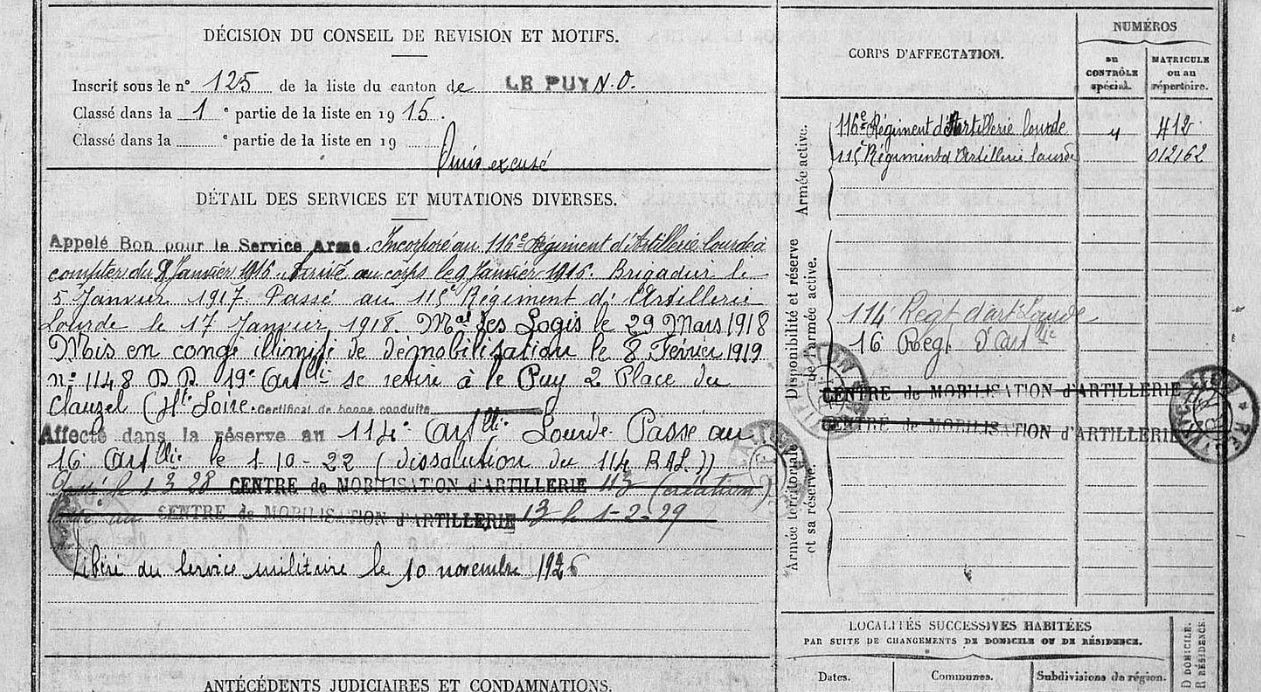 DÉCISION DU CONSEIL DE REVISION ET MOTIFS.
Inscrit sous le n° 125 de la liste du canton de LE PUY N.O.
Classé dans la 1 e partie de la liste en 19 15.
Classé dans la e partie de la liste en 19
Omis excusé
DÉTAIL DES SERVICES ET MUTATIONS DIVERSES.
Appelé Bon pour le Service Armé Incorporé au 116e Régiment d'Artillerie lourde à
compter du Janvier 1916 Arrivé au corps le 9 Janvier 1916. Brigadier le
5 Janvier 1917. Passé au 115e Régiment d'Artillerie
Lourde le 17 Janvier 1918. Mal des Logis le 29 Mars 1918
Mis en congé illimité de démobilisation le 8 Février 1919
n° 1148 D.D. 19e Artllie se retire à le Puy 2 Place du
Clauzel (Hte Loire. Certificat de bonne conduite
Affecté dans la réserve au 114e Artllie Lourde. Passe au
16e Artllie le 1-10-22 (dissolution du 114 RAL))
le 1-3-28 CENTRE de MOBILISATION d'ARTILLERIE 113 (création)
au CENTRE de MOBILISATION d'ARTILLERIE 13 le 1-2-29
Libéré du Service militaire le 10 novembre 1926
ANTÉCÉDENTS JUDICIAIRES ET CONDAMNATIONS.
CORPS D'AFFECTATION.
NUMÉROS
au CONTRÔLE spécial.
MATRICULE ou au répertoire.
Armée active.
116e Régiment d'Artillerie lourde 412
115e Régiment d'Artillerie lourde 012162
Disponibilité et réserve de l'armée active.
114 Regt d'art Lourde
16 Reg. d'Artllie
CENTRE de MOBILISATION d'ARTILLERIE
CENTRE de MOBILISATION d'ARTILLERIE
Armée territoriale et sa réserve.
LOCALITÉS SUCCESSIVES HABITÉES
PAR SUITE DE CHANGEMENTS DE DOMICILE OU DE RÉSIDENCE.
Dates.
Communes.
Subdivisions de région.
D DOMICILE.
R RÉSIDENCE.